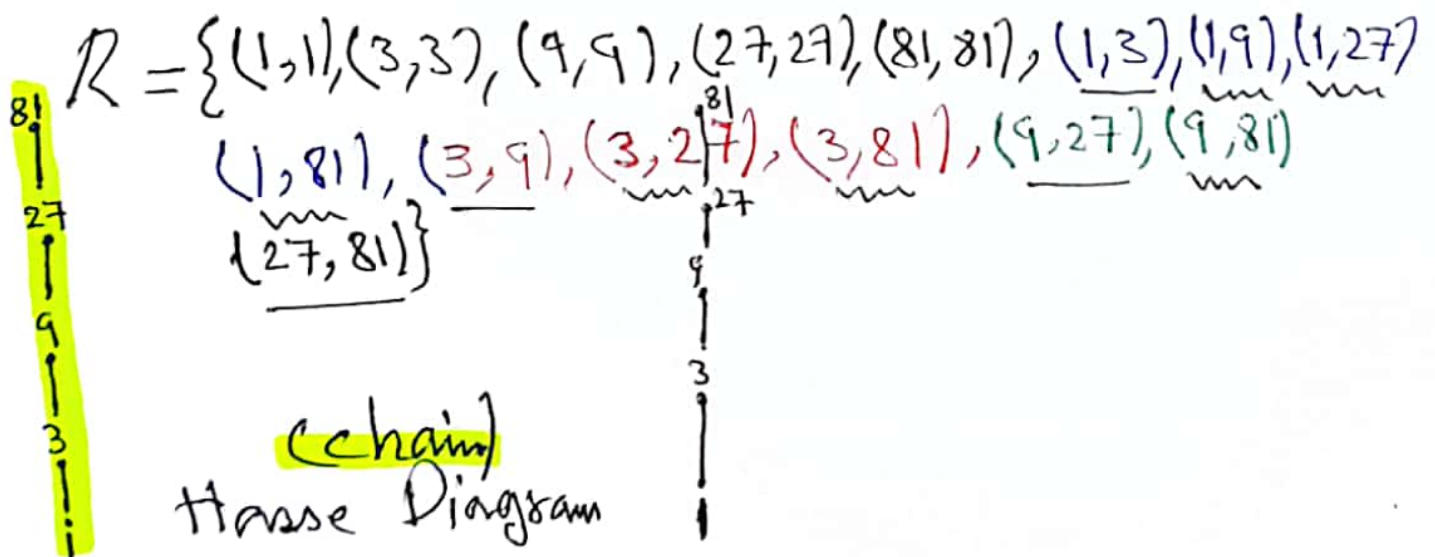 R = {(1,1),(3,3), (9,9), (27,27), (81,81), (1,3), (1,9), (1,27)
(1,81), (3,9), (3,27), (3,81), (9,27), (9,81)
(27,81)}
81
27
9
3
1
81
27
9
3
1
(chain)
Hasse Diagram